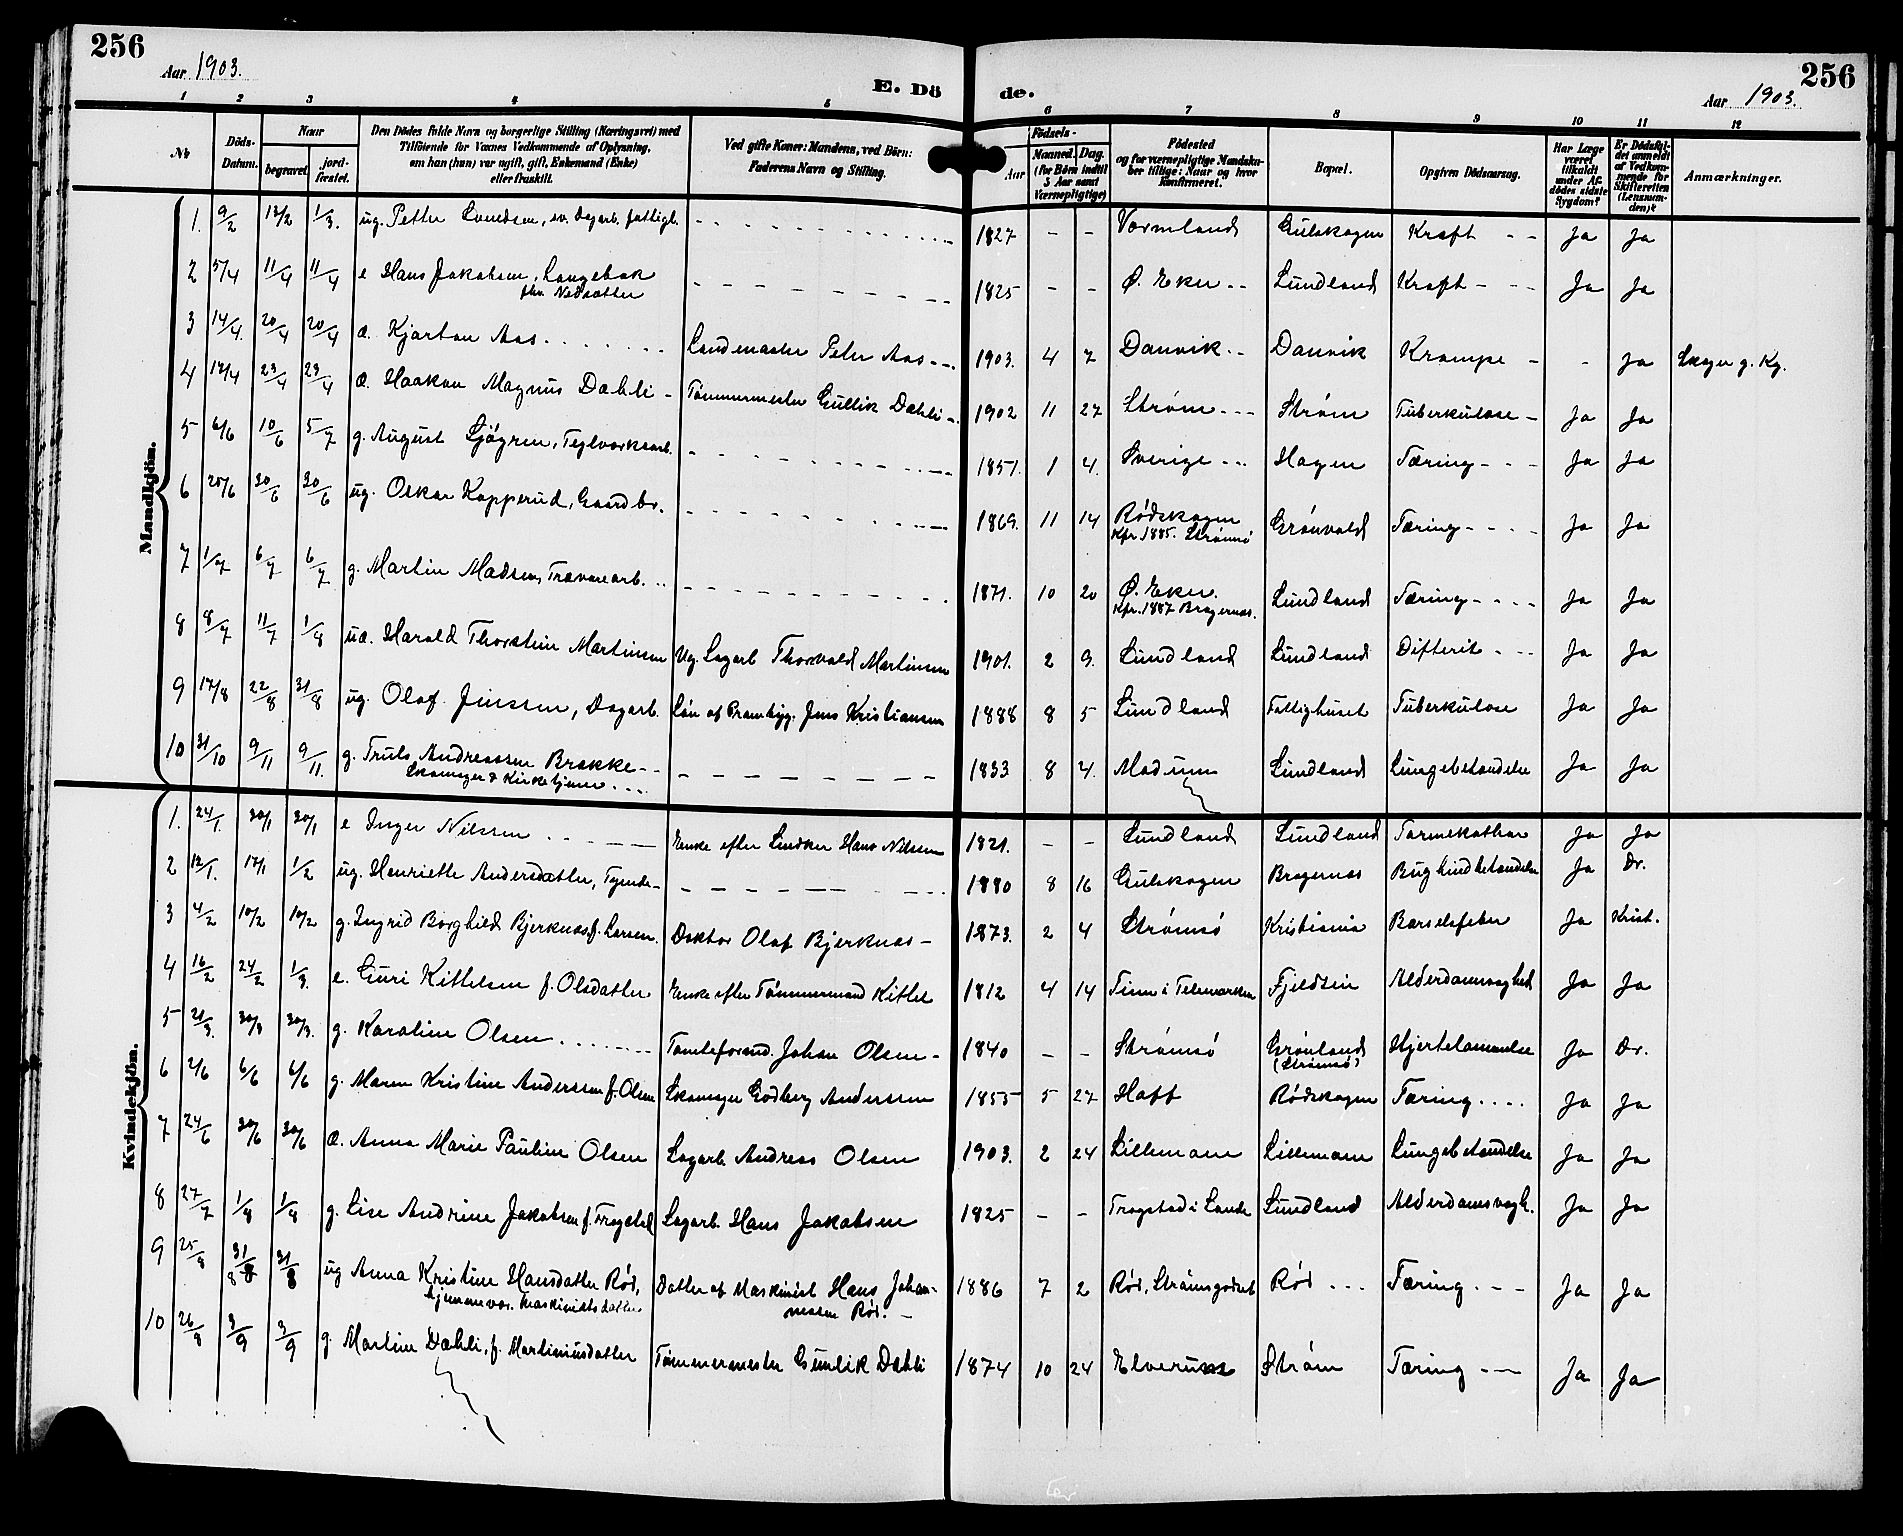 256
Aar 1903.
E. Dö
de.
256
Aar 1903.
1 2 3 4 5 6 7 8 9 10 11 12
No
Döds-Datum.
Naar
begravet.
jord-fæstet.
Den Dödes fulde Navn og borgerlige Stilling (Næringsvei) med
Tilföiende for Voxnes Vedkommende af Oplysning,
om han (hun) var ugift, gift, Enkemand (Enke)
eller fraskilt.
Ved gifte Koner: Mandens, ved Börn:
Faderens Navn og Stilling.
Födsels-
Aar
Maaned. Dag.
(for Börn indtil
5 Aar samt
Værnepligtige)
Födested
og for værnepligtige Mandska-
ber tillige: Naar og hvor
Konfirmeret.
Bopæl.
Opgiven Dödsaarsag.
Har Læge
været
tilkaldt
under Af-
dödes sidste
Sygdom?
Er Dödsfal-
det anmeldt
af Vedkom-
mende for
Skifteretten
(Lensman-
den)?
Anmærkninger.
Mandkjön.
1. 9/2 13/2 1/3. ug. Petter Svendsen, sv. Dagarb. fattigl. 1827 - - Vermland Gulskogen Kræft - - Ja Ja
2 5/4 11/4 11/4 e Hans Jakobsen, Langebak 1825 - - Ø. Eker - - Lundland Kræft - - - Ja Ja
fhv. Nedsætter
3 14/4. 20/4 20/4 æ. Kjartan Aas Landmaaler Peter Aas - - 1903. 4 7 Danvik - - Danvik Krampe - - Ja Læge g. Kg.
4 17/4 23/4 23/4 æ. Haakon Magnus Dæhli - Tømmermester Gullik Dæhli - 1902 11 27 Strøm - - - Strøm Tuberkulose - Ja Ja
5 6/6 10/6 5/7 g. August Sjøgren, Teglverksarb. 1851. 1 4. Sverige - - Hagen Tæring - - - Ja Ja
6 25/6 30/6 30/6 ug. Oskar Kopperud, Gaardbr. 1869. 11 14 Rødskogen Grønvold Tæring - - - Ja Ja
Kfr. 1885. Strømsø
7 1/7 6/7 6/7 g. Martin Madsen, Trævarearb. 1871. 10 20 Ø. Eker. Lundland Tæring - - - - Ja Ja
Kfr. 1887 Bragernæs.
8 8/7 11/7 1/8 uæ. Harald Thorstein Martinsen Ug. Sagarb Thorvald Martinsen 1901. 2 9. Lundland Lundland Difterit - - - Ja Ja
9 17/8 22/8 31/8 ug. Olaf Jenssen, Dagarb. Søn af Prambyg. Jens Kristiansen 1888 8 5 Lundland Fattighuset Tuberkulose Ja Ja
10 31/10 9/11 9/11. g. Truls Andreassen Brække - - 1833 8 4. Modum Lundland Lungebetændelse Ja Ja
Skomager & Kirketjener
Kvindekjön.
1. 24/1. 30/1 30/1 e Inger Nilssen Enke efter Snedker Hans Nilssen 1821. - - Lundland Lundland Tarmekathar Ja Ja
2 12/1. 17/1 1/2 ug. Henriette Andersdatter, Tjenste - 1880 8 16 Gulskogen Bragernæs Bughindebetændelse Ja Dr.
3 4/2 10/2 10/2 g. Ingrid Borghild Bjerknæs, f. Larsen. Doktor Olaf Bjerknæs - 1873. 2 4 Strømsø Kristiania Barselsfeber Ja Krist.
4 16/2 24/2 1/3. e. Guri Kittelsen f. Olsdatter Enke efter Tømmermand Kittel 1812 4 14 Tinn i Telemarken Fjeldsin Alderdomssvaghed Ja Ja
5 21/3. 30/3 30/3. g. Karoline Olsen Tomteformd. Johan Olsen - 1840 - - Strømsø Grønland Hjertelammelse Ja Dr.
(Strømsø)
6 2/6 6/6 6/6 g. Maren Kristine Anderssen f. Olsen Skomager Godberg Anderssen 1855 5 27 Haff Rødskogen Tæring - - - - Ja Ja
7 24/6 30/6 30/6 æ. Anna Marie Pauline Olsen Sagarb. Andreas Olsen 1903. 2 24 Lillemoen Lillemoen Lungebetændelse Ja Ja
8 27/7 1/8 1/8 g. Lise Andrine Jakobsen f. Trogstad Sagarb. Hans Jakobsen 1825 - - Trogstad i Sande Lundland Alderdomssvagh. Ja Ja
9 25/8 31/8 31/8 ug Anna Kristine Hansdatter Rød, Datter af Maskinist Hans Johan- 1886 7 2 Rød, Strømsgodset Rød - - - Tæring - - - Ja Ja
hjemmevær. Maskinists datter nessen Rød. -
10 26/8 3/9 3/9 g. Martine Dæhli, f. Martiniusdatter Tømmermester Gunlik Dæhli 1874 10 24 Elverum Strøm Tæring - - - Ja Ja